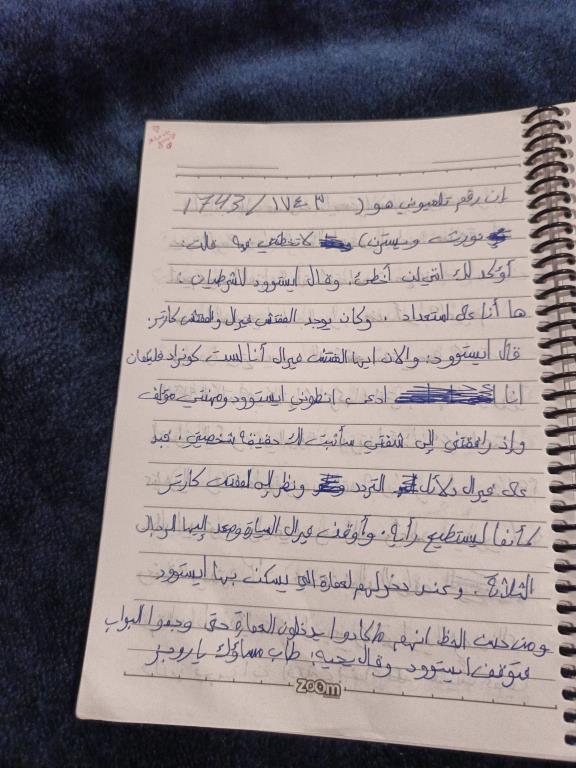 ان رقم تلفيوني هو ( ١٧٤٣ / 1743 /
نورث ويسترن) لا تخطئي فيه قالت:
أؤكد لك انني لن أخطئ، وقال ايستوود للشرطيات:
ها أنا على استعداد . وكان يوجد المفتش فيرال والمفتش كارتر.
قال ايستوود: والان ايها المفتش فيرال أنا لست كونراد فليكمان
انا ادعى انطوني ايستوود ومهنتي مؤلف
وإذ رافقتني إلى شقتي سأثبت لك حقيقة شخصيتي. فبد
على فيرال دلائل التردد ونظر إلى المفتش كارتر
كأنما ليستطيع رأيه. وأوقف فيرال السيارة وصعد إليها الرجال
الثلاثة. وعند دخولهم لعمارة التي يسكن بها ايستوود
ومن حسن الحظ انهم ما كادوا يدخلون العمارة حتى وجدوا البواب
فتوقف ايستوود وقال يحييه: طاب مساؤك يا روجر
zoom